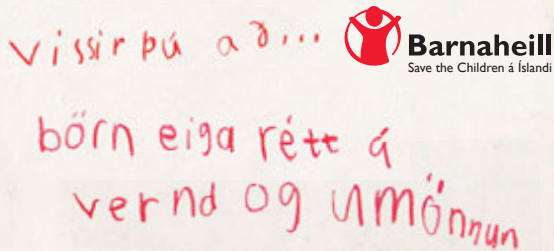 vissir þú að...
Barnaheill
Save the Children á Íslandi
börn eiga rétt á
vernd og umönnun